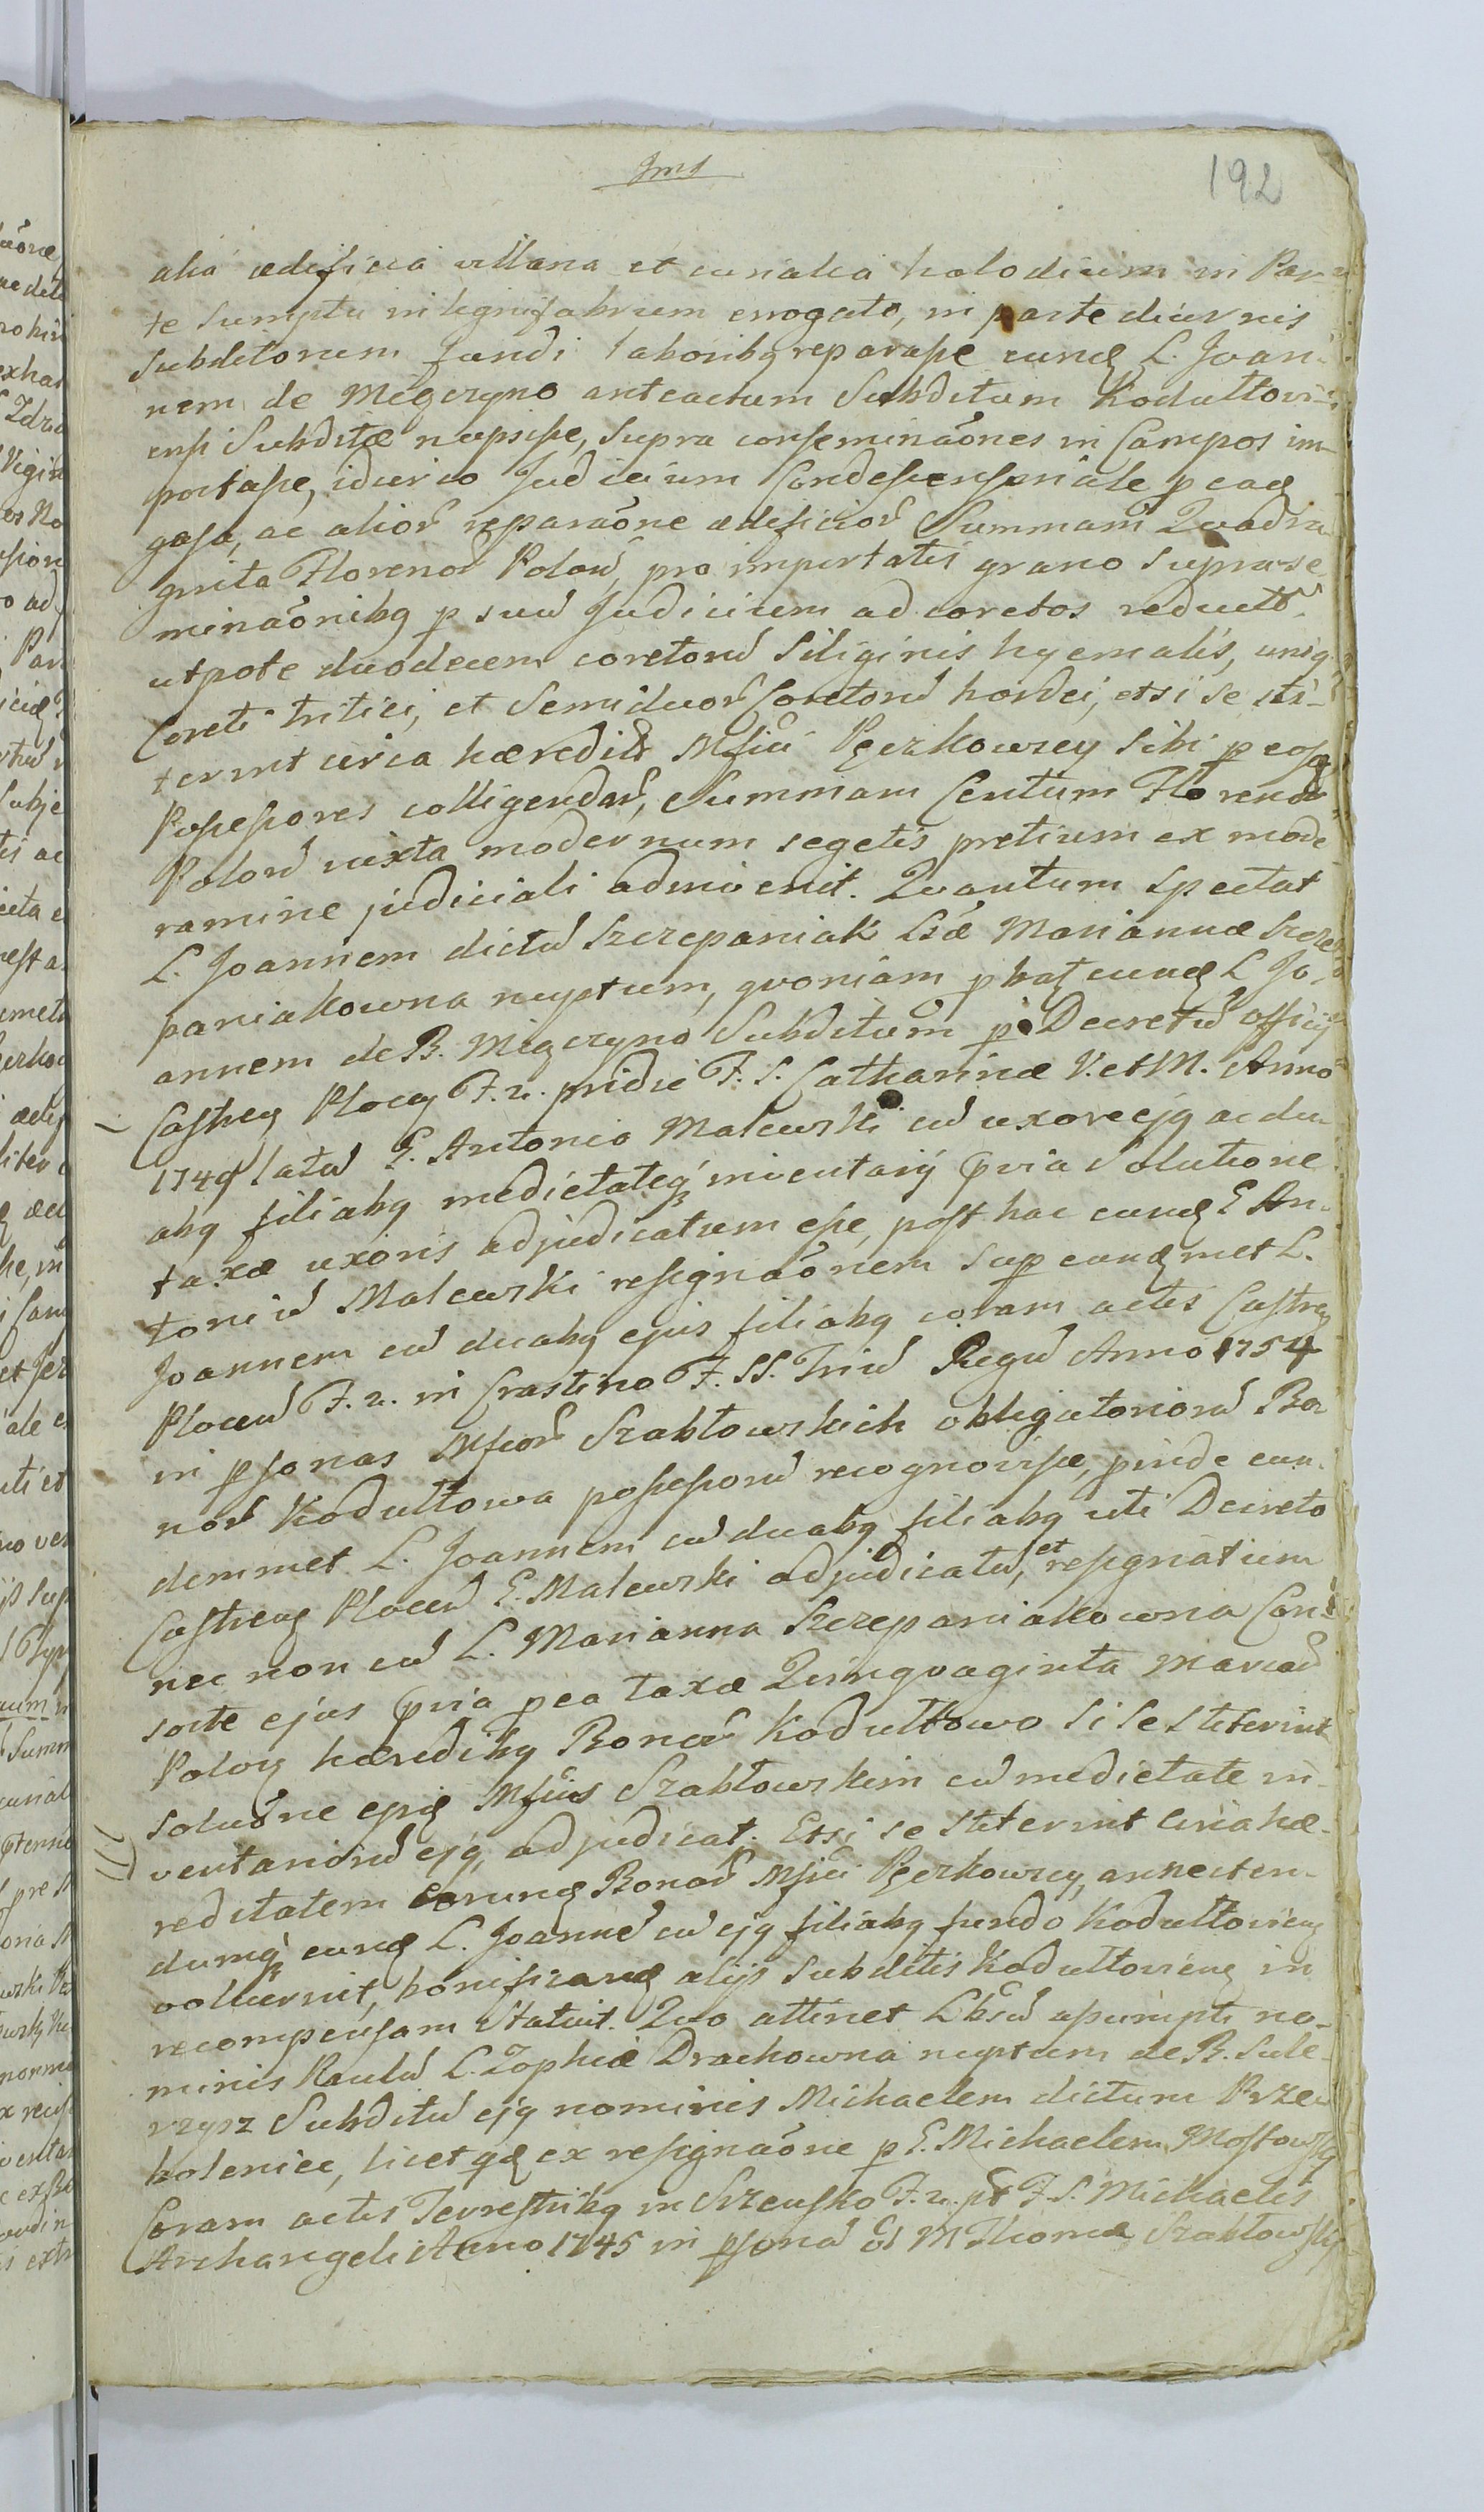 192
alia ædificia villana et curialia halodium in Par-
te Sumptu in lignifabrum errogato, in parte diurnis
Subditorum fundi laboribq reparasse eund L. Joan-
nem de Mięczyno anteactum Subditum Kodułtovi-
ensi Subditæ nupsisse, Supra conseminaones in Campos im-
portasse, idcirco Judicium Condescensoriale p ead
gasa, ac alior reparaone ædificior Summam Qvadra
ginta Florenor Polon, pro importatis grano supra-se-
minaonibq p suu Judicium ad coretos reductr
utpote duodecem coretoru Siliginis hyemalis, uniq
Coreti tritici, et Semiduor Coretoru hordei, etsi se sti-
terint circa hæredit Mfici Pęczkowscy Sibi p eosq
Possessores colligendar, Summam Centum Florenor
Polon iuxta modernum segetis pretium ex mode
ramine judiciali admivenit. Qvantum spectat
L. Joannem dictu Szczepaniak Lsæ Mariannæ Szcze
paniakowna nuptum, qvoniam phat eund L Jo-
annem de B. Mięczyno Subditum p Decretu officij
Castren Plocen F. 2. pridie F. S. Catharinæ V. et M. Anno
1749 latu G. Antonio Malewski cu uxore ejq ac du-
abq filiabq medietateq inventarij pvia Solutione
taxæ uxoris adjudicatum esse, post hac eund G An-
toniu Malewski resignaonem sup eundmet L.
Joannem cu duabq ejus filiabq coram actis Castren
Plocen F. 2. in Crastino F. SS. Triu Regu Anno 1754
in psonas Mficor Szabłowskich obligatorioru Bo-
nor Kodułtowa possessoru recognovisse, pinde eun-
demmet L. Joannem cu duabq filiabq uti Decreto
Castren Plocen G. Malewski adjudicatu, et resignatum
nec non cu L. Marianna Szczepaniakowna Con-
sorte ejus pvia p ea taxæ Quinqvaginta Marcar
Polon hæredibq Bonor Kodułtowo si se stiterint
soluone ejusd Mficis Szabłowskim cu medietate in-
ventarioru ejq, adjudicat. Etsi se stiterint circa hæ-
reditatem eorund Bonor Mfici Pęczkowscy, annecten-
dumq eund L. Joanne cu ejq filiabq fundo Kodułtovien
voluerint, bonificand alijs Subditis Kodułtovien in
recompensam Statuit. Quo attinet Lbsu assumpti no-
minis Paulu L. Zophiæ Drachowna nuptum de B. Sule-
rzysz Subditu ejq nominis Michaelem dictum Przew
holeniec, licet qd ex resignaone p G. Michaelem Mostowsk
Coram actis Terrestribq in Szreńsko F. 2. pt F. S. Michaelis
Archangeli Anno 1745 in psona M Thomæ Szabłowsky